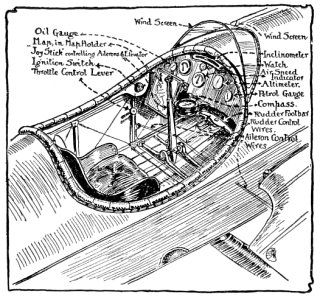 Wind Screen
Oil Gauge
Map in Map Holder
Joy Stick controlling Ailerons & Elevator
Ignition Switch
Throttle Control Lever
Wind Screen
Inclinometer
Watch
Air Speed
Indicator
Altimeter.
Petrol Gauge
Compass.
Rudder Footbar
Rudder Control
Wires.
Aileron Control
Wires